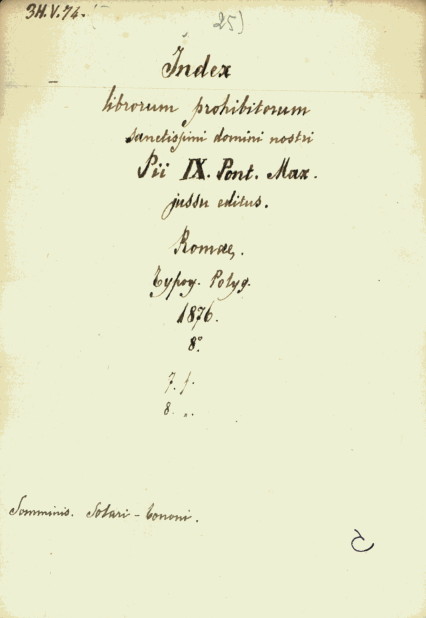 3H.V.74.
25)
Index
librorum prohibitorum
sanctissimi domini nostri
Pii IX. Pont. Max.
jussu editus.
Romae,.
Typog. Polyg.
1876.
8°.
7. f.
8. „.
Somminis. Solari - Conóni.